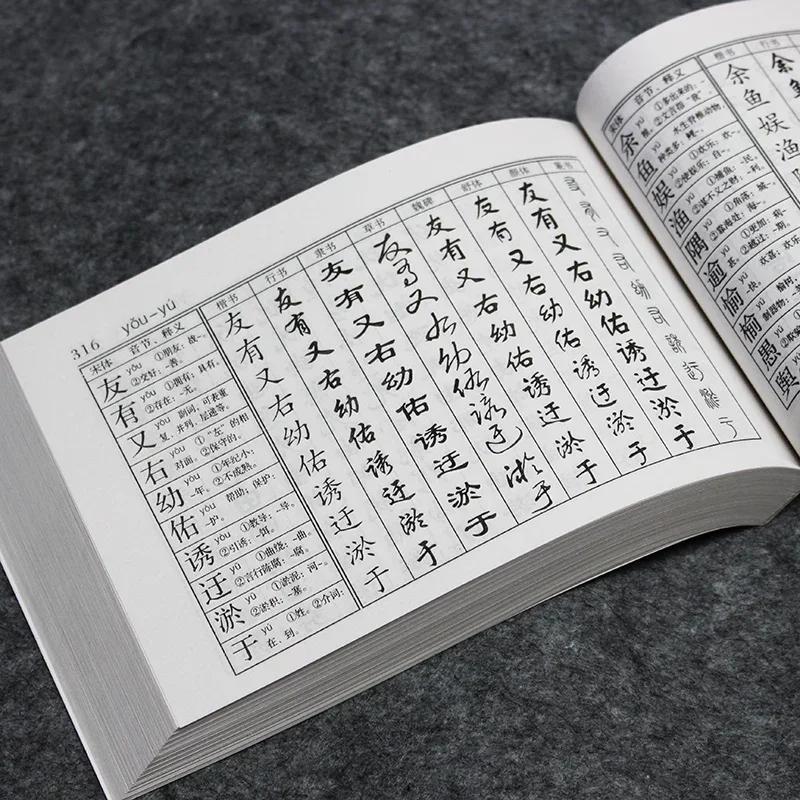 316 yǒu-yú
宋体 音节、释义 楷书 行书 隶书 草书 魏碑 舒体 颜体 篆书
友 yǒu ①朋友：战-。②交好：-善。 友 友 友 友 友 友 友
有 yǒu ①拥有：具有。②存在：-无。 有 有 有 有 有 有 有
又 yòu 副词，可表重复、并列、层递等。 又 又 又 又 又 又 又
右 yòu ①“左”的相对面。②保守的。 右 右 右 右 右 右 右
幼 yòu ①年纪小：-年。②不成熟。 幼 幼 幼 幼 幼 幼 幼
佑 yòu 帮助；保护：-护。 佑 佑 佑 佑 佑 佑 佑
诱 yòu ①教导：-导。②引诱：-饵。 诱 诱 诱 诱 诱 诱 诱
迂 yū ①曲绕：-曲。②言行陈腐：-腐。 迂 迂 迂 迂 迂 迂 迂
淤 yū ①淤泥：河-。②淤积：-塞。 淤 淤 淤 淤 淤 淤 淤
于 yú ①姓。②介词：在、到。 于 于 于 于 于 于 于 于
宋体 音节、释义 楷书 行书
余 yú ①多出来的：-粮。②文言指“我”。 余 余
鱼 yú 水生脊椎动物，种类多：鲤-。 鱼 鱼
娱 yú ①欢乐：欢-。②使娱乐：自-。 娱
渔 yú ①捕鱼：-民。②谋不义之财：-利。 渔
隅 yú ①角落：城-。②靠海处：海-。
逾 yú ①更加：-甚。②越过：-期。
愉 yú 欢喜，欢乐：-快。
榆 yú 榆树
愚
舆